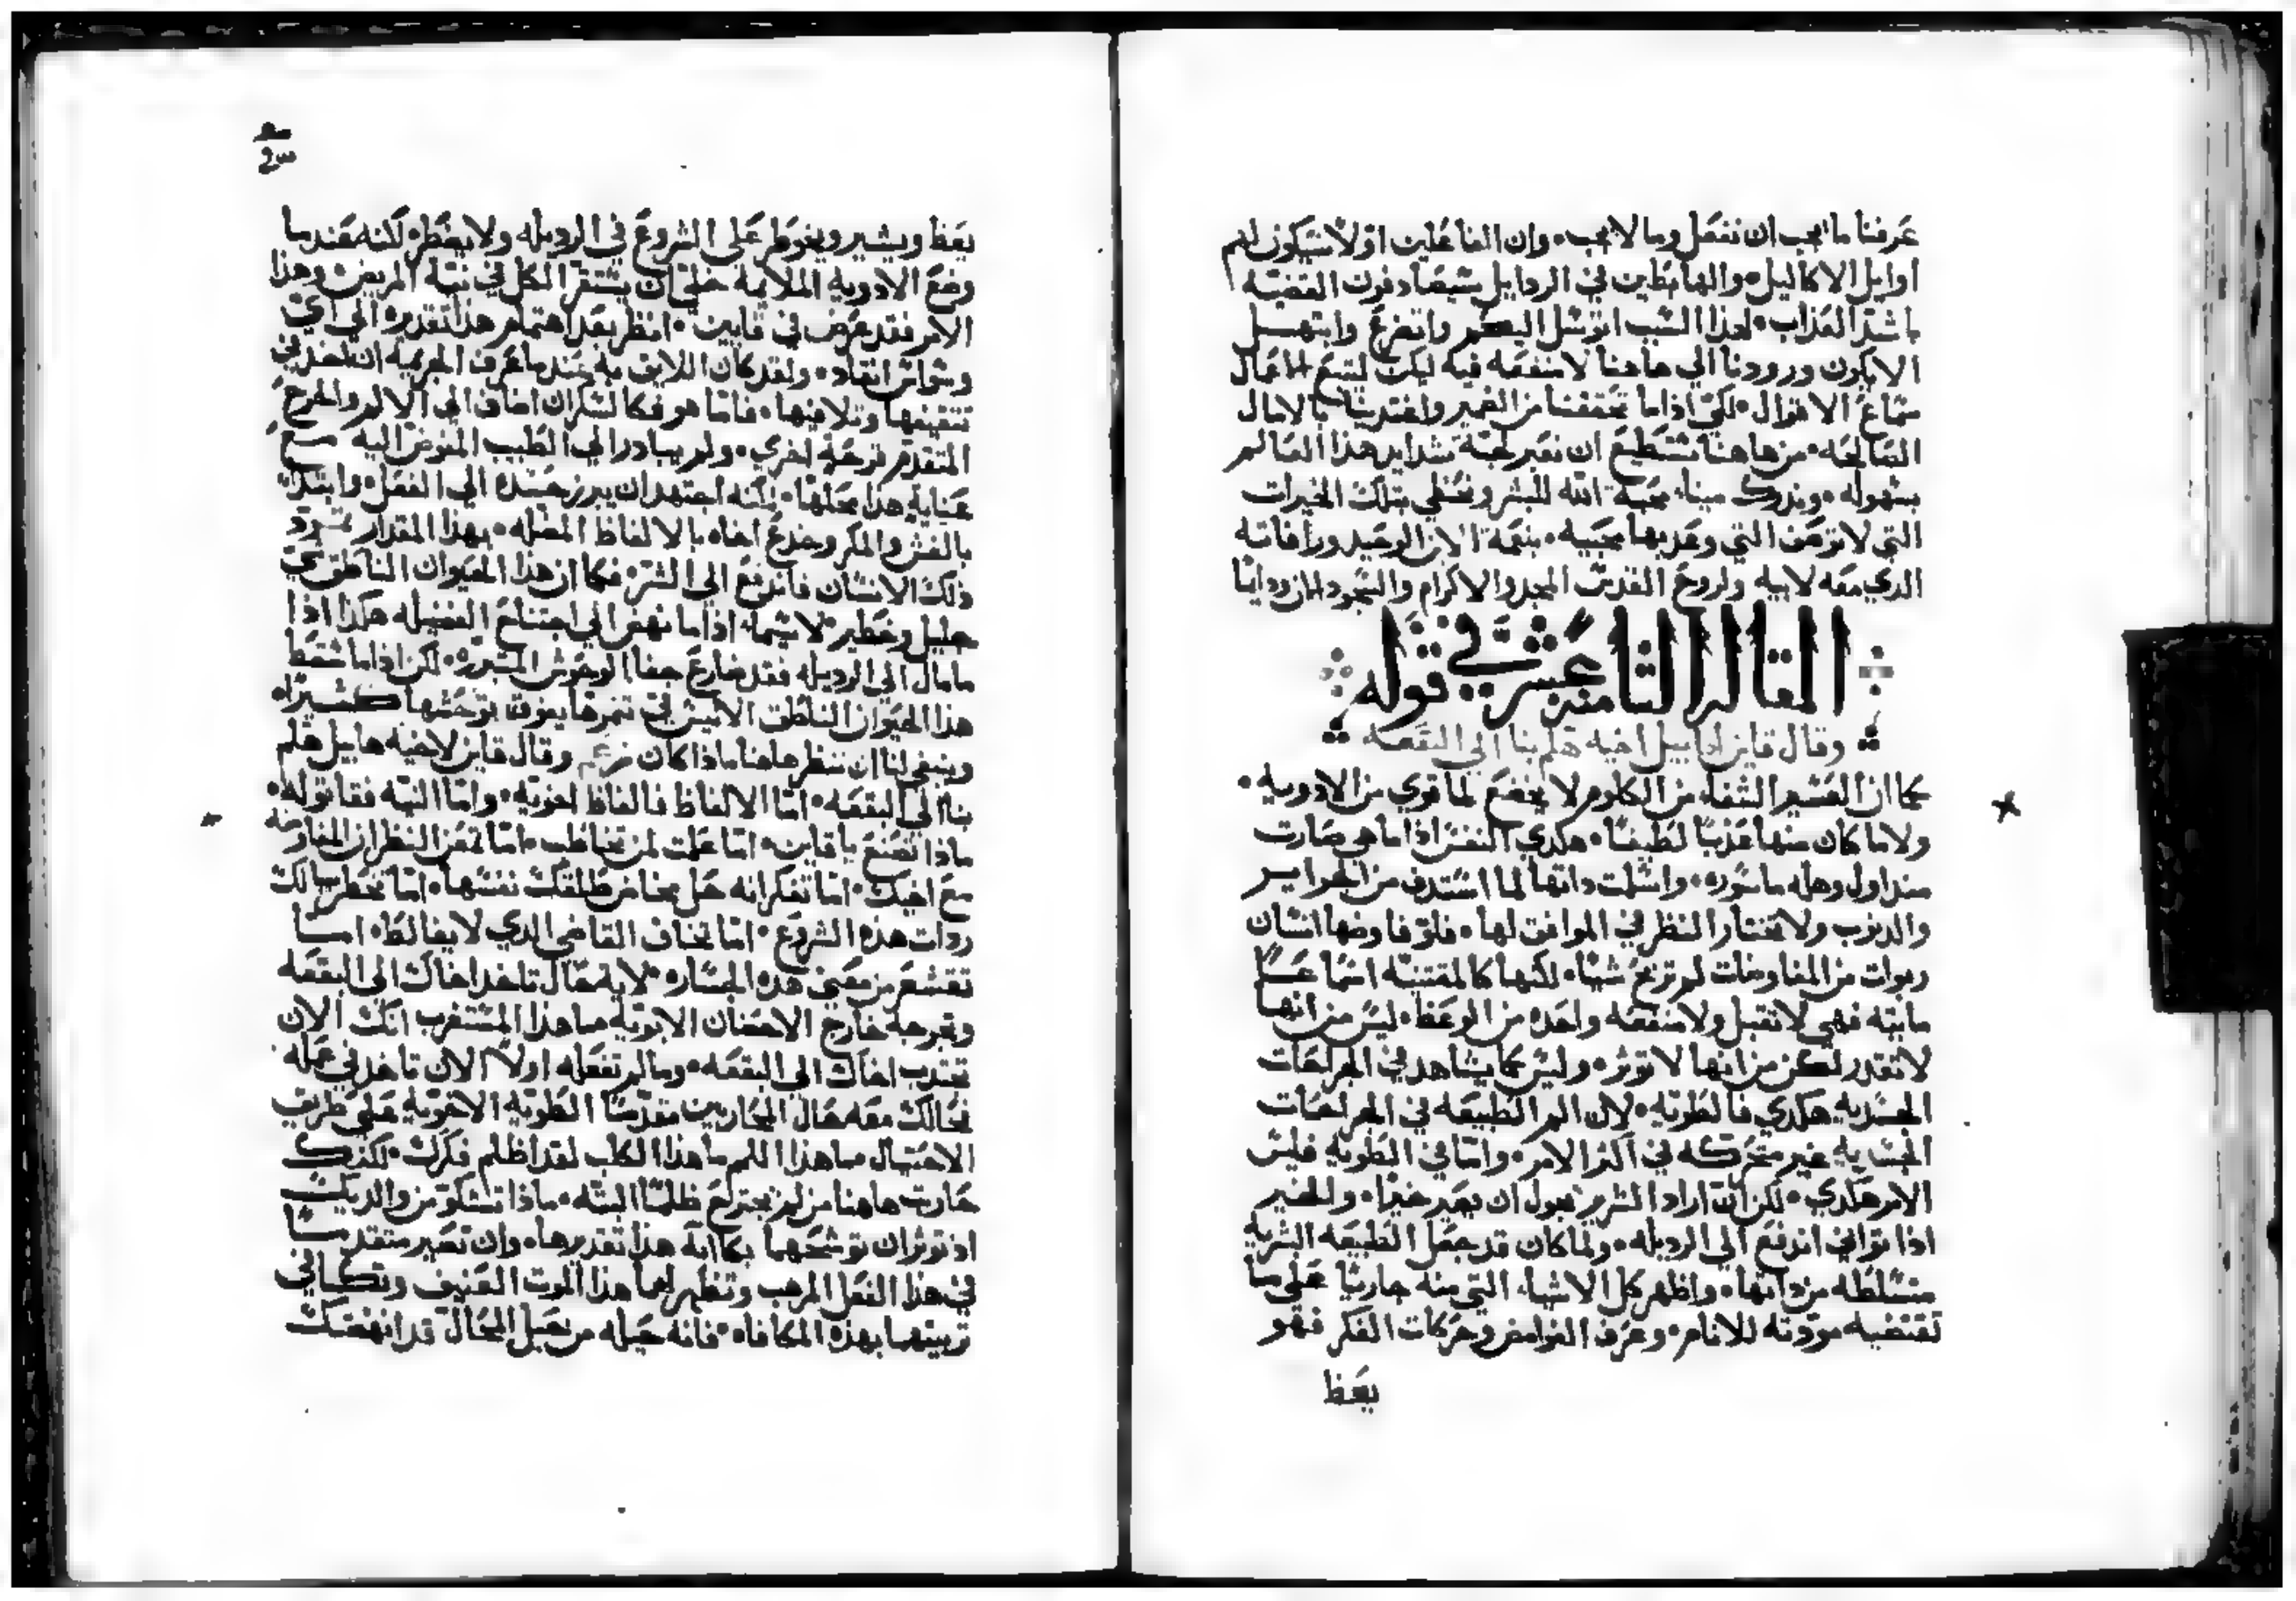 عرفنا ما يجب ان نفعل وما لا يجب٠ وان الفاعلين اولا سيكون لهم
اوايل الاكاليل٠ والهابطين في الردايل سيصادفون القضيه
باشد العذاب٠ لهذا السبب اتوسل اليكم واتضرع وابتهل
الا يكون ورودنا الي هاهنا لا منفعه فيه لكن لتتبع الاعمال
سماع الاقوال٠ لكي اذا ما تحققنا من الضمير واغتدينا بالامال
الصالحه٠ من هاهنا نستطيع ان نعبر لجة شدايد هذا العالم
بسهوله٠ وندرك مينا محبة الله للبشر ونحظي بتلك الخيرات
التي لا توصف التي وعد بها محبيه٠ بنعمة الابن الوحيد ورافاته
الدي معه لابيه ولروح القدس المجد والاكرام والسجود الان ودايما
المقاله الثامنة عشر في قوله
وقال قاين لهابيل اخيه هلم بنا الي البقعه
كما ان العسير الشفاء من الكلوم لا يخضع لما قوي من الادويه٠
ولا ما كان منها عذبا لطيفا٠ هكدي النفس اذا ما هي صارت
منذ اول وهله ماسوره٠ واسلمت داتها لما استدف من الجراير
والدنوب ولا تختار النظر في الموافق لها٠ فلو فاوضها انسان
ربوات من المفاوضات لم تربح شيا٠ لكنها كالمقتنيه اسماعا
مايته فهي لا تقبل ولا منفعه واحده من الوعظ٠ ليس من انها
لا تقدر لكن من انها لا توثر٠ وليس كما يشاهد في الجراحات
الجسديه هكدي في الطويه٠ لان الم الطبيعه في الجراحات
الجسمانيه غير متحركه في اكثر الامر٠ واما في الطويه فليس
الامر هكدي٠ لكن ان اراد الشرير يحول ان يصير خيرا٠ والخير
اذا تواني اندفع الي الرديله٠ ولما كان قد جعل الطبيعه البشريه
متسلطه من داتها٠ واظهر كل الاشياء التي منه جاريا علي ما
تقتضيه مودته للانام٠ وعرف الغوامض وحركات الفكر فهو
يعظ
يعظ ويشير ويغوط علي الشروع في الرديله ولا يضطر٠ لكنه عندما
وضع الادويه الملايمة خلي ان يستقر الكل في نية المريض وهذا
الامر فقد عرض في قاين٠ انظر بعد اهتمام هذا تقديره الي اي
وسواس انقاد٠ ولقد كان اللايق به عندما عرف الجريمة ان ياخد في
تثقيفها وتلافيها٠ فاما هو فكالسكران اضاف الي الالم والجرح
المتقدم قرحة اخري٠ ولم يبادر الي الطبيب المفوض اليه مع
عناية هذا محلها٠ لكنه اجتهد ان يبرز حسده الي الفعل٠ وابتدا
بالغش والمكر وخدع اخاه بالالفاظ المضله٠ بهذا المقدار تمرد
ذلك الانسان فاندفع الي الشر٠ فكما ان هذا الحيوان الناطق
جليل وخطير٠ لا سيما اذا ما نهض الي اجتناء الفضيله هكدا اذا
ما مال الي الرديله فقد ضارع جفا الوحوش المتمرده٠ لكن اذا ما سقط
هذا الحيوان الناطق الانيس في تمردها يفوق توحشها كثيرا
وينبغي لنا ان ننظر هاهنا ماذا كان وقال قاين لاخيه هابيل هلم
بنا الي البقعه٠ اما الالفاظ فالفاظ اخويه٠ واما النيه فقاتوله٠
ماذا تصنع يا قاين٠ اما علمت لمن تخاطب٠ اما تمعن النظر ان المفاوضه
مع اخيك٠ اما تفكر انه حل مخاض طلقتك نفسها٠ اما تخطر ببالك
ردات هذه الشروع٠ اما تخاف القاضي الدي لا يغالط٠ اما
تقشعر من معني هده الجساره٠ لاية حال تاخد اخاك الي البقعه
وتخرجه خارج الاحضان الابويه ما هذا المستغرب انك الان
تجتدب اخاك الي البقعه٠ وما لم تفعله اولا الان تاخذ في عمله
تخالك معه حال المحاربين مقدسا الطويه الاخويه علي طريق
الاحتيال ما هذا اللم ما هذا الكلب لقد اظلم فكرك٠ لكنك
حاربت هاهنا من لم يجترح ظلما البته٠ ماذا تشكو من والديك
اذ توثر ان توشحهما بكاابه هذا تقديرها٠ وان تصير متقدما
في هذا الفعل المرهب وتظهر لهما هذا الموت العنيف وتكافي
تربيتهما بهذه المكافاه٠ فانه حيله من حيل المحال قد انهضتك